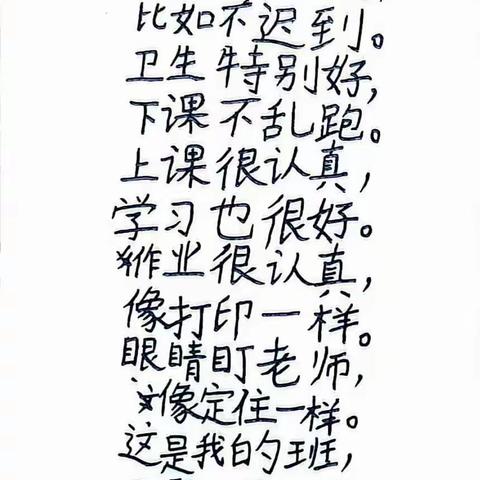 比如不迟到。
卫生特别好,
下课不乱跑。
上课很认真,
学习也很好。
作业很认真,
像打印一样。
眼睛盯老师,
像定住一样。
这是我的班,